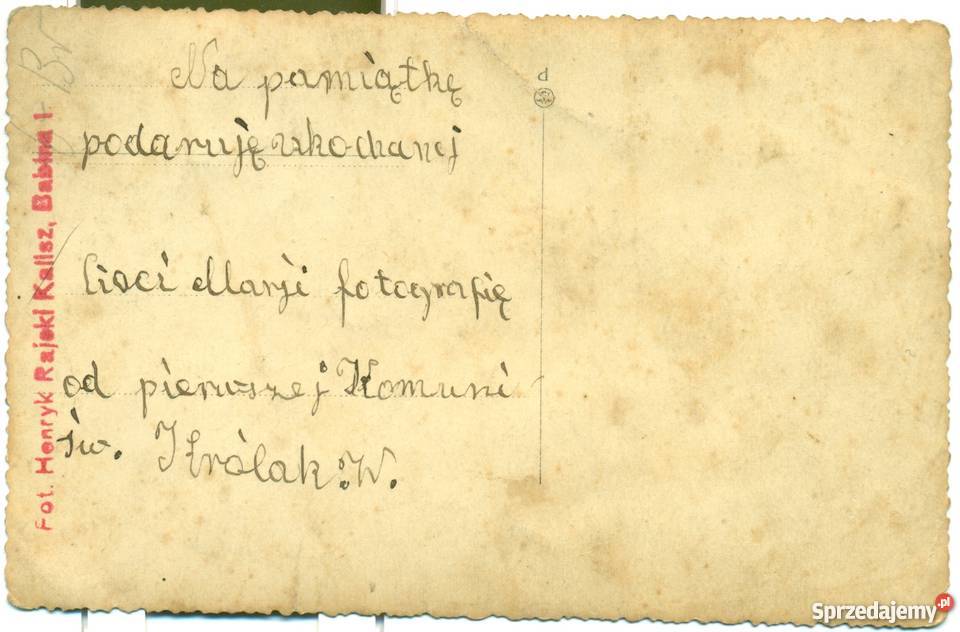 Na pamiątkę
podaruję ukochanej
Cioci Marji fotografię
od pierwszej Komuni
św. Królak W.
Fot. Henryk Rajski Kalisz, Babina 1.
Sprzedajemy.pl